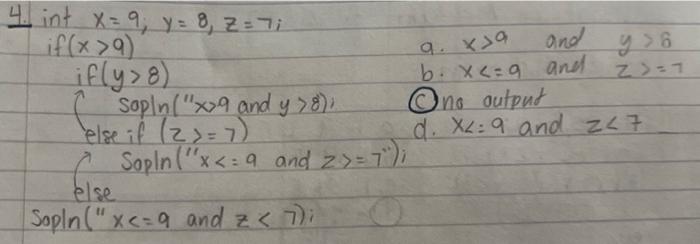 4. int x = 9, y = 8, z = 7;
if(x > 9)
if(y > 8)
Sopln("x>9 and y >8);
else if (z >= 7)
Sopln("x <= 9 and z >= 7");
else
Sopln("x<=9 and z < 7);
a. x>9 and y >8
b. x<=9 and z >=7
c no output
d. x<=9 and z<7